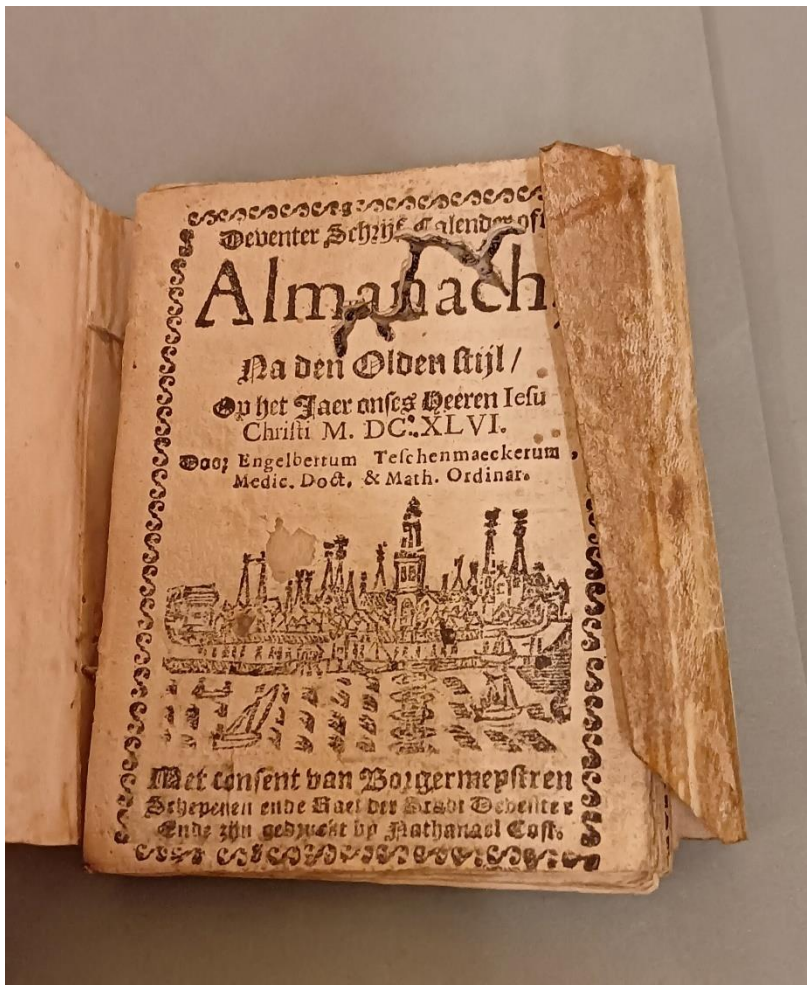 Deventer Schrijf Calender oft
Almanach,
Na den Olden stijl /
Op het Jaer onses Heeren Iesu
Christi M. DC. XLVI.
Door Engelbertum Teschenmaeckerum,
Medic. Doct. & Math. Ordinar.
Met consent van Borgermeystren
Schepenen ende Raet der Stadt Deventer
Ende zijn gedruckt by Nathanael Cost.